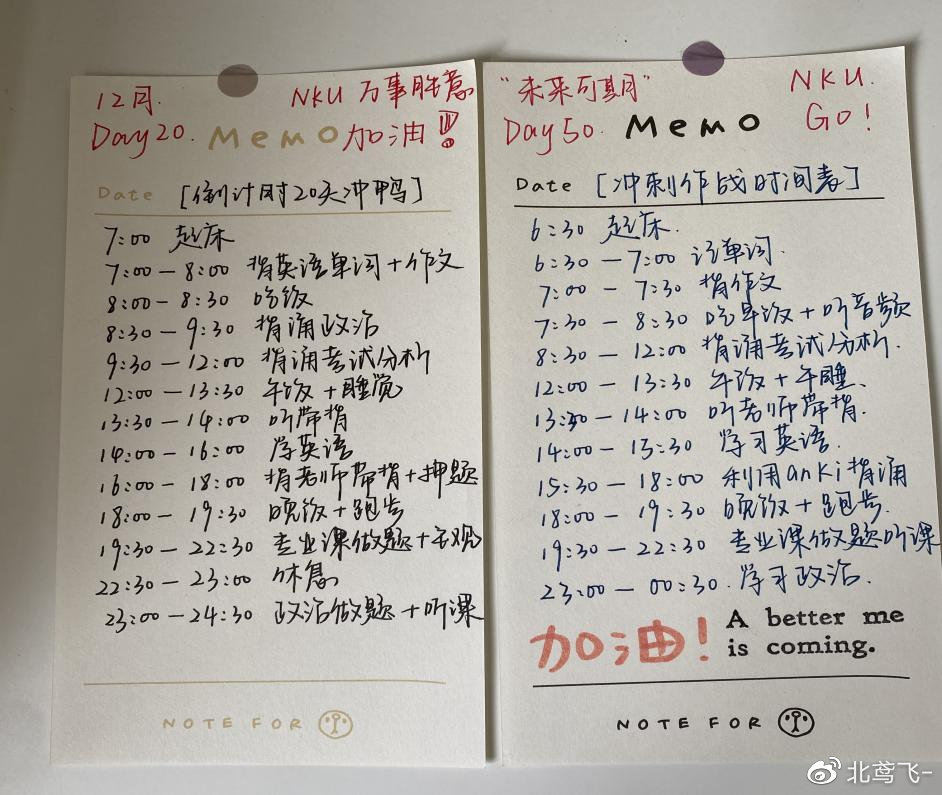 12月.
NKU 万事胜意
Day20.
Memo
加油!!!
Date [倒计时20天冲鸭]
7:00 起床
7:00 — 8:00 背英语单词+作文
8:00 — 8:30 吃饭
8:30 — 9:30 背诵政治
9:30 — 12:00 背诵考试分析
12:00 — 13:30 午饭+睡觉
13:30 — 14:00 听带背
14:00 — 16:00 学英语
16:00 — 18:00 背老师带背+押题
18:00 — 19:30 晚饭+跑步
19:30 — 22:30 专业课做题+主观
22:30 — 23:00 休息
23:00 — 24:30 政治做题+听课
NOTE FOR
"未来可期"
NKU.
Day50.
Memo
GO!
Date [冲刺作战时间表]
6:30 起床.
6:30 — 7:00 记单词.
7:00 — 7:30 背作文
7:30 — 8:30 吃早饭+听音频
8:30 — 12:00 背诵考试分析.
12:00 — 13:30 午饭+午睡.
13:30 — 14:00 听老师带背.
14:00 — 15:30 学习英语.
15:30 — 18:00 利用anki背诵
18:00 — 19:30 晚饭+跑步.
19:30 — 22:30 专业课做题听课
23:00 — 00:30 学习政治.
加油!
A better me
is coming.
NOTE FOR
北鸢飞-